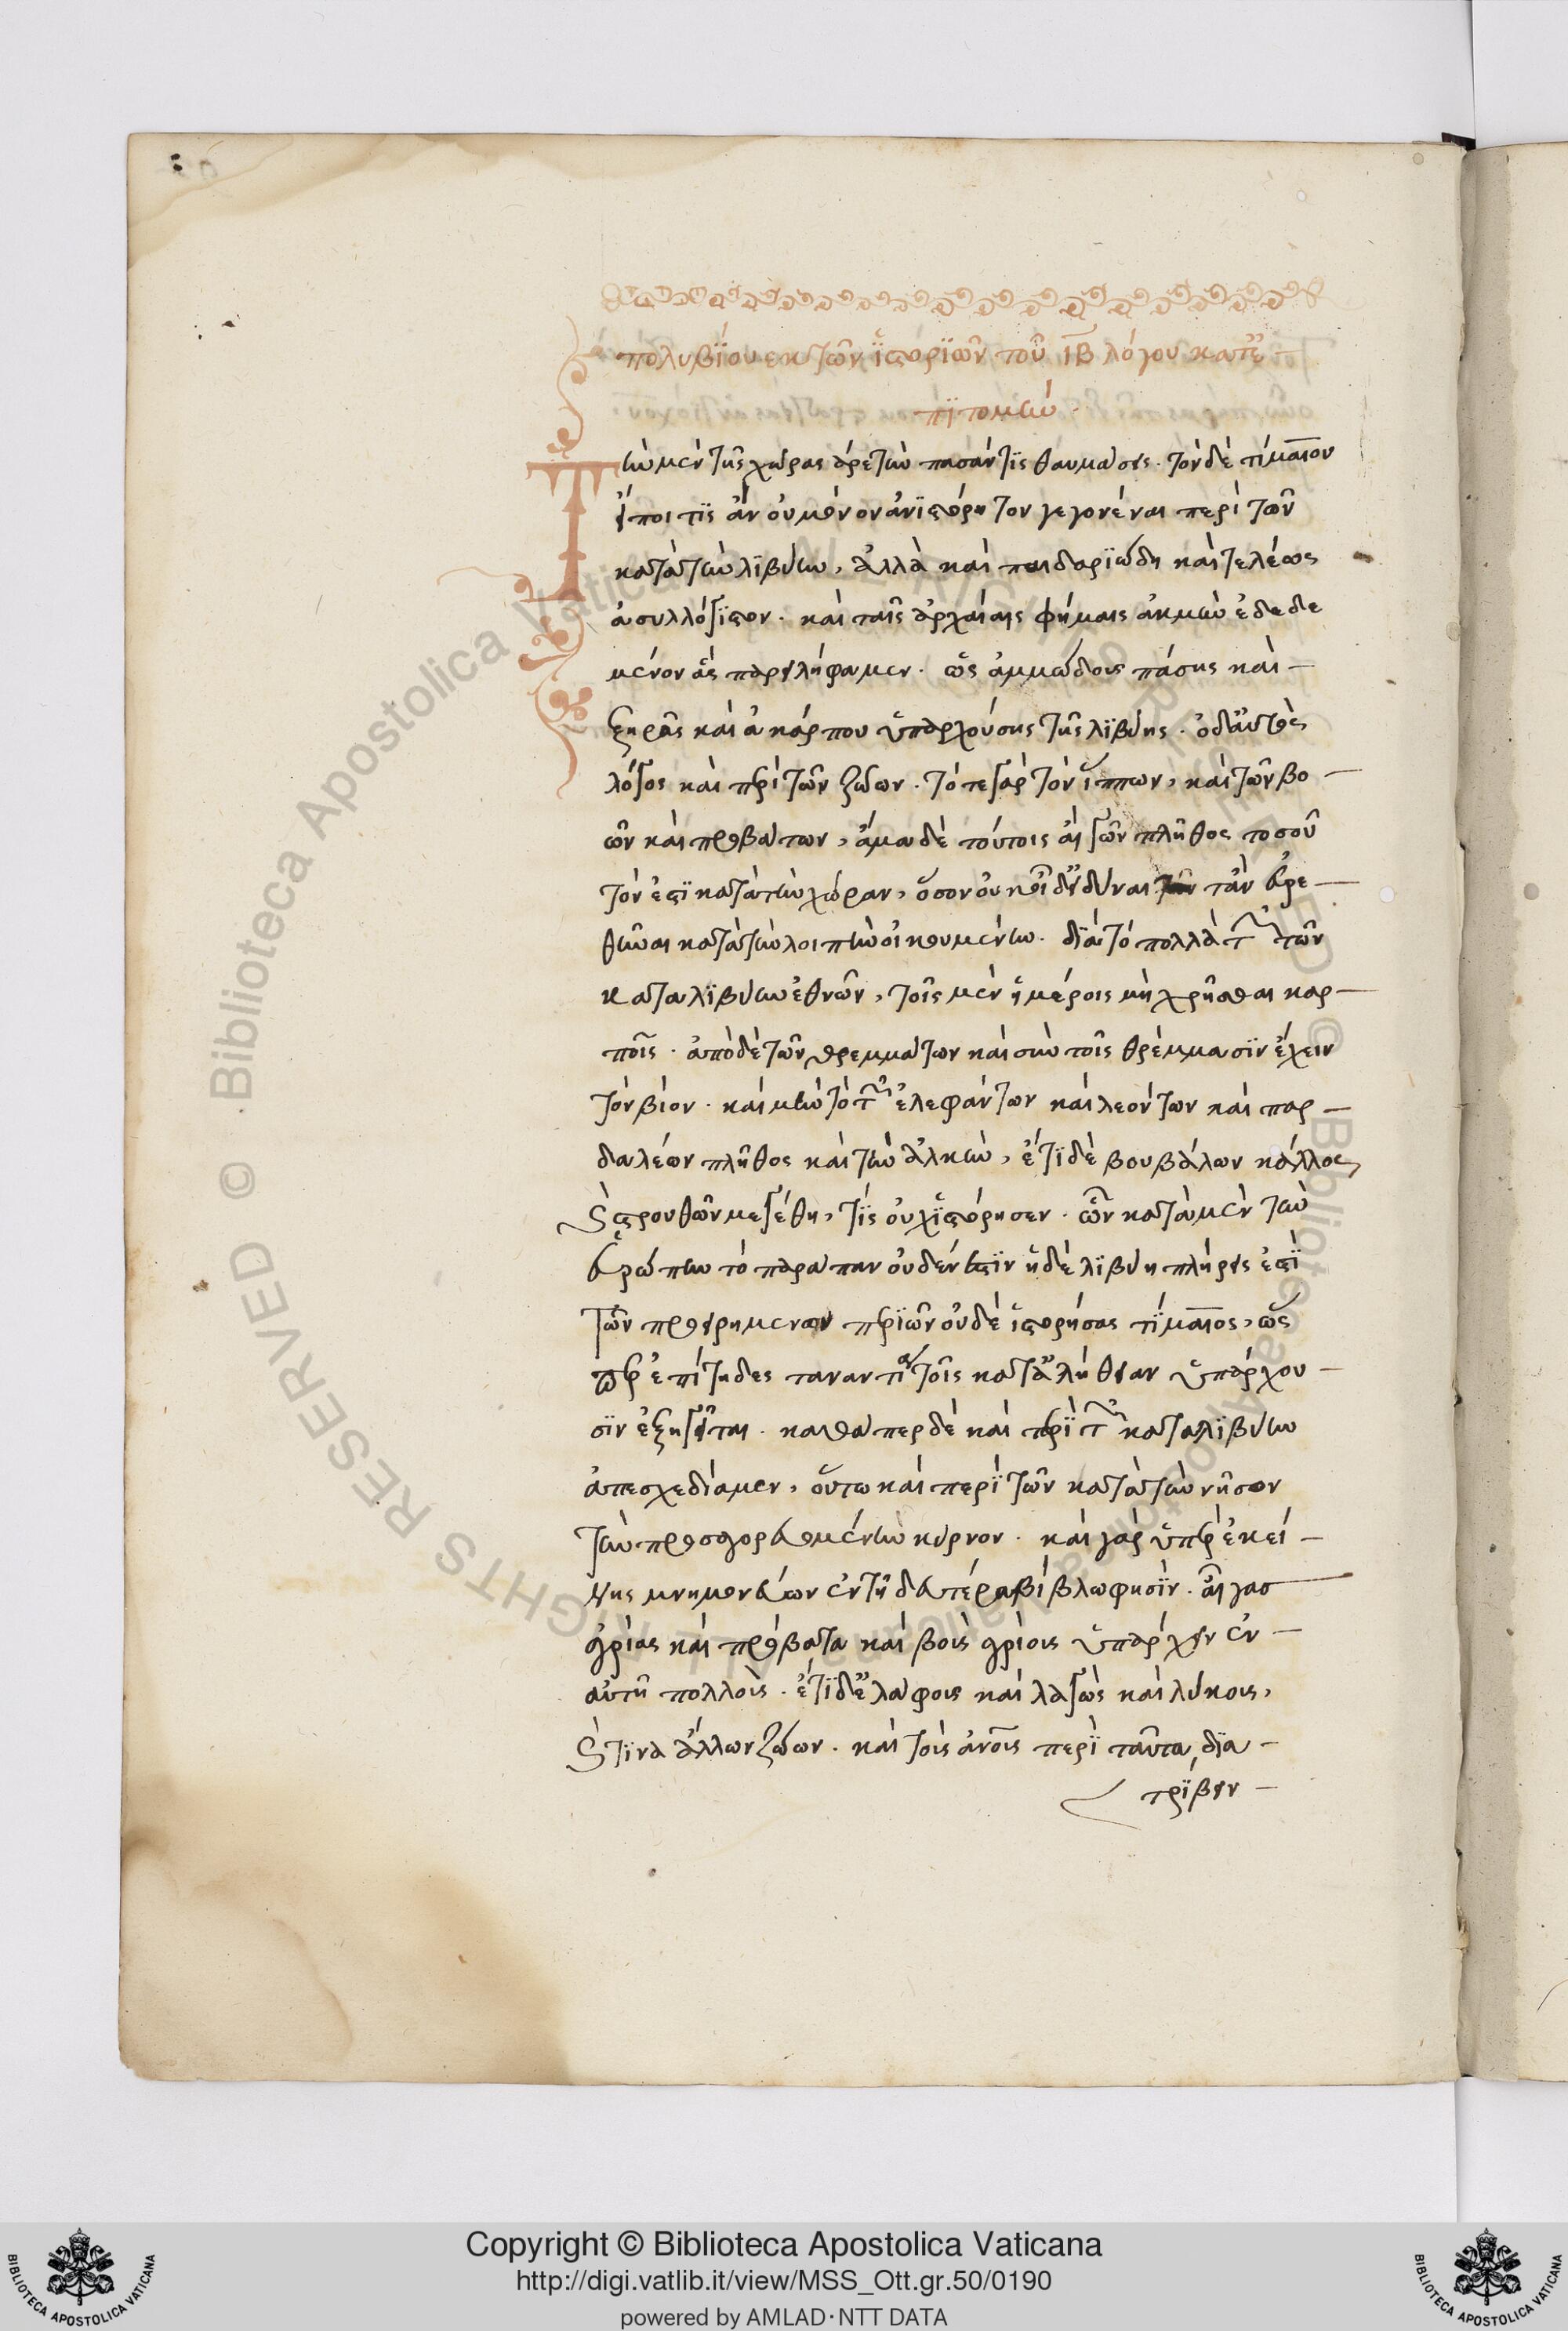 πολυβΐου εκ τῶν ἱστορϊῶν τοῦ ΙΒ λόγου κατ' ἐ-
πϊτομὴν.
Τὴν μὲν τῆς χώρας ἀρετὴν πασάν τϊς θαυμάσει. τὸν δὲ τίμαιον
είποι τϊς ἂν οὐ μόνον ἀνϊστόρητον γεγονέναι περὶ τῶν
κατὰ τὴν λϊβύην, ἀλλὰ καὶ παιδαρϊώδη καὶ τελέως
ἀσυλλόγϊστον. καὶ ταῖς ἀρχαίαις φήμαις ἀκμὴν ἐδεδε
μένον ἃς παρειλήφαμεν. ὡς ἀμμώδους πάσης καὶ-
ξηρᾶς καὶ ἀκάρπου ὑπαρχούσης τῆς λϊβύης. ὁ δ' αὐτὸς
λόγος καὶ περὶ τῶν ζώων. τό τε γὰρ τὸν ἵππων, καὶ τῶν βο-
ῶν καὶ προβάτων, ἅμα δὲ τούτοις αἰγῶν πλῆθος τοσοῦ
τόν ἐστϊ κατὰ τὴν χώραν, ὅσον οὐκ οἶδ' εἰ δύναιτ' ἂν εὑρε-
θῆναι κατὰ τὴν λοιπὴν οἰκουμένην. δϊὰ τὸ πολλὰ τῶν
κατα λϊβύην ἐθνῶν, τοῖς μὲν ἡμέροις μὴ χρῆσθαι καρ-
ποῖς. ἀπὸ δὲ τῶν θρεμμάτων καὶ σὺν τοῖς θρέμμασϊν ἔχειν
τὸν βίον. καὶ μὴν τὸ τῶν ἐλεφάντων καὶ λεόντων καὶ παρ-
δαλέων πλῆθος καὶ τὴν ἀλκὴν, ἔτϊ δὲ βουβάλων κάλλος,
καὶ στρουθῶν μεγέθη, τίς οὐχ ἱστόρησεν. ὧν κατὰ μὲν τὴν
εὐρώπην τὸ παράπαν οὐδέν ἐστϊν ἡ δὲ λϊβύη πλήρης ἐστϊ
τῶν προειρημενων περϊ ὧν οὐδὲ ἱστορήσας τίμαιος, ὥς
περ ἐπίτηδες ταναντία τοῖς κατ' ἀλήθειαν ὑπάρχου-
σϊν ἐξηγεῖται. καθάπερ δὲ καὶ περϊ τῶν κατα λϊβύην
ἀπεσχεδίαμεν, οὕτω καὶ περϊ τῶν κατὰ τὴν νῆσον
τὴν προσαγορευομένην κύρνον. καὶ γὰρ ὑπὲρ ἐκεί-
νης μνημονεύων ἐν τῇ δευτέρα βίβλω φησϊν. αἶγας
ἀγρίας καὶ πρόβατα καὶ βοῦς ἀγρίους ὑπάρχειν ἐν-
αὐτῇ πολλοὺς. ἔτϊ δ' ἐλάφους καὶ λαγὼς καὶ λύκους,
καὶ τϊνα ἄλλων ζώων. καὶ τοὺς ἀνους περϊ ταῦτα δϊα-
τρϊβειν-
Copyright © Biblioteca Apostolica Vaticana
http://digi.vatlib.it/view/MSS_Ott.gr.50/0190
powered by AMLAD·NTT DATA
BIBLIOTECA APOSTOLICA VATICANA
BIBLIOTECA APOSTOLICA VATICANA